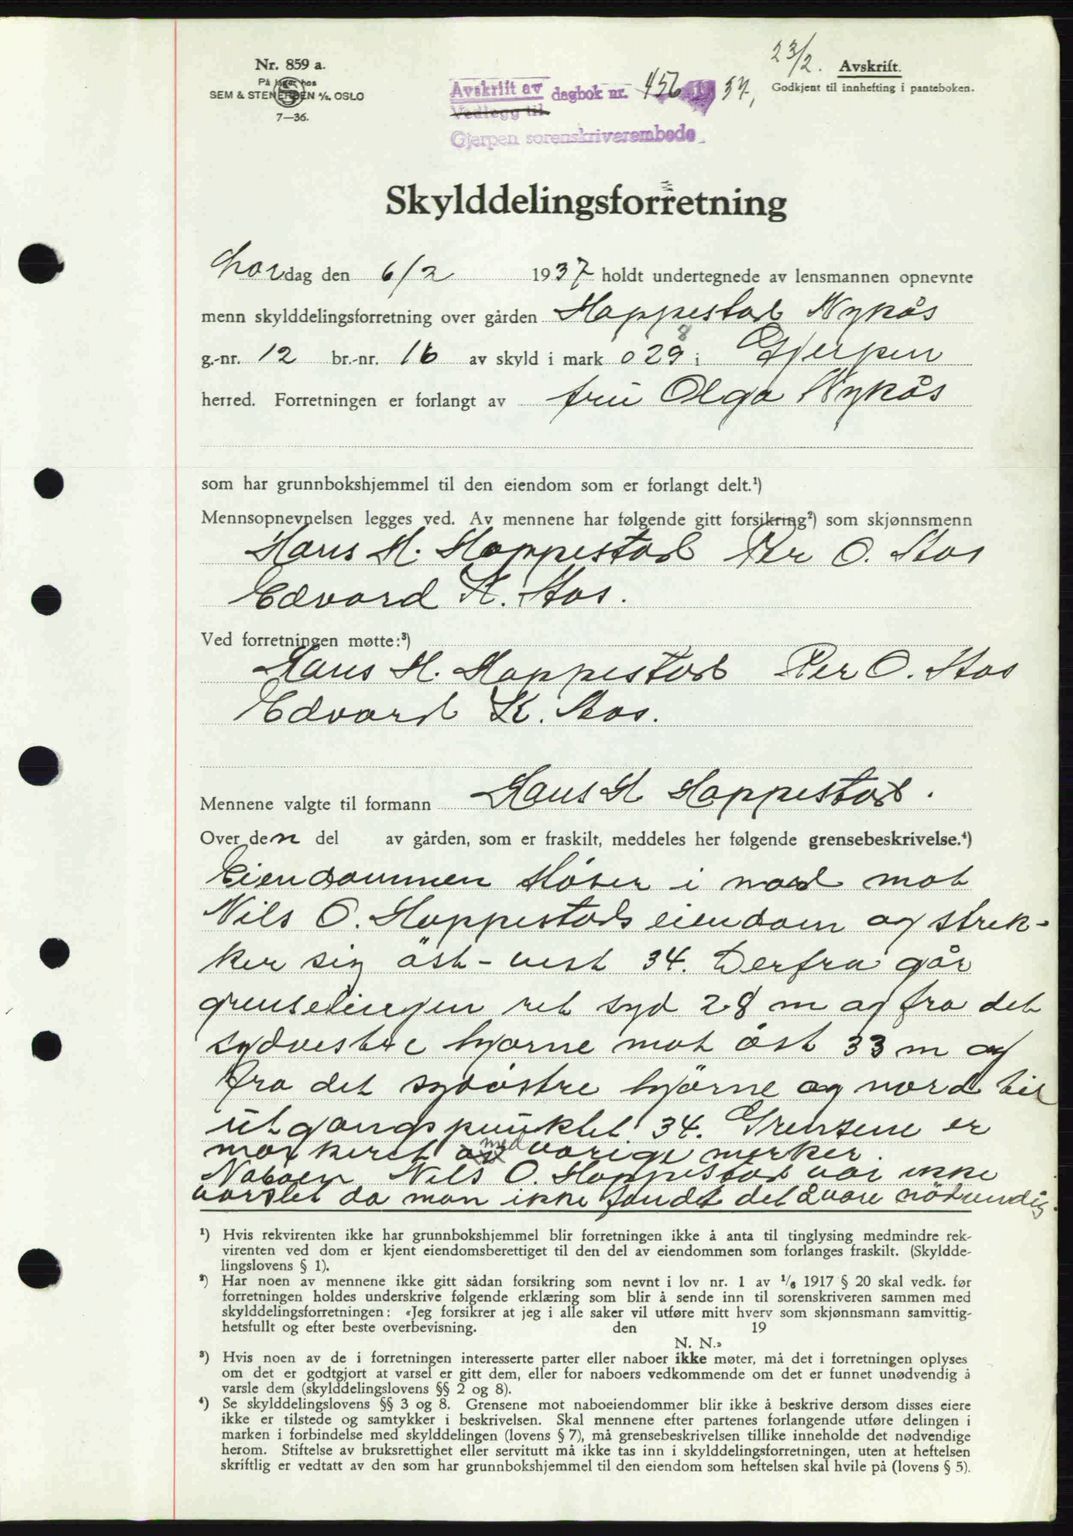 23/2.
Nr. 859 a.
På lager hos
SEM & STENERSEN A/S, OSLO
7—36.
Avskrift.
Godkjent til innhefting i panteboken.
Avskrift av dagbok nr. 456 1937,
Vedlegg til
Gjerpen sorenskriverembede.
Skylddelingsforretning
Lørdag den 6/2 1937 holdt undertegnede av lensmannen opnevnte
menn skylddelingsforretning over gården Hoppestad Nykås
g.-nr. 12 br.-nr. 16 av skyld i mark 029 i Gjerpen
8
herred. Forretningen er forlangt av fru Olga Nykås
som har grunnbokshjemmel til den eiendom som er forlangt delt.¹)
Mennsopnevnelsen legges ved. Av mennene har følgende gitt forsikring²) som skjønnsmenn
Hans H. Hoppestad Per O. Aas
Edvard K. Aas.
Ved forretningen møtte:³)
Hans H. Hoppestad Per O. Aas
Edvard K. Aas.
Mennene valgte til formann Hans H Hoppestad.
Over den del av gården, som er fraskilt, meddeles her følgende grensebeskrivelse.⁴)
Eiendommen støter i nord mot
Nils O. Hoppestads eiendom og strek-
ker sig öst-vest 34. Derfra går
grenselinjen ret syd 28 m og fra det
sydvestre hjørne mot öst 33 m og
fra det sydöstre hjörne og nord til
utgangspunktet 34. Grensene er
markeret med varige merker.
Naboen Nils O. Hoppestad var ikke
varslet da man ikke fandt det å være nödvendig.
¹) Hvis rekvirenten ikke har grunnbokshjemmel blir forretningen ikke å anta til tinglysing medmindre rek-
virenten ved dom er kjent eiendomsberettiget til den del av eiendommen som forlanges fraskilt. (Skyldde-
lingslovens § 1).
²) Har noen av mennene ikke gitt sådan forsikring som nevnt i lov nr. 1 av ¹/₆ 1917 § 20 skal vedk. før
forretningen holdes underskrive følgende erklæring som blir å sende inn til sorenskriveren sammen med
skylddelingsforretningen: «Jeg forsikrer at jeg i alle saker vil utføre mitt hverv som skjønnsmann samvittig-
hetsfullt og efter beste overbevisning. den 19
N. N.»
³) Hvis noen av de i forretningen interesserte parter eller naboer ikke møter, må det i forretningen oplyses
om det er godtgjort at varsel er gitt dem, eller for naboers vedkommende om det er funnet unødvendig å
varsle dem (skylddelingslovens §§ 2 og 8).
⁴) Se skylddelingslovens §§ 3 og 8. Grensene mot naboeiendommer blir ikke å beskrive dersom disses eiere
ikke er tilstede og samtykker i beskrivelsen. Skal mennene efter partenes forlangende utføre delingen i
marken i forbindelse med skylddelingen (lovens § 7), må grensebeskrivelsen tillike inneholde det nødvendige
herom. Stiftelse av bruksrettighet eller servitutt må ikke tas inn i skylddelingsforretningen, uten at heftelsen
skriftlig er vedtatt av den som har grunnbokshjemmel til den eiendom som heftelsen skal hvile på (lovens § 5).